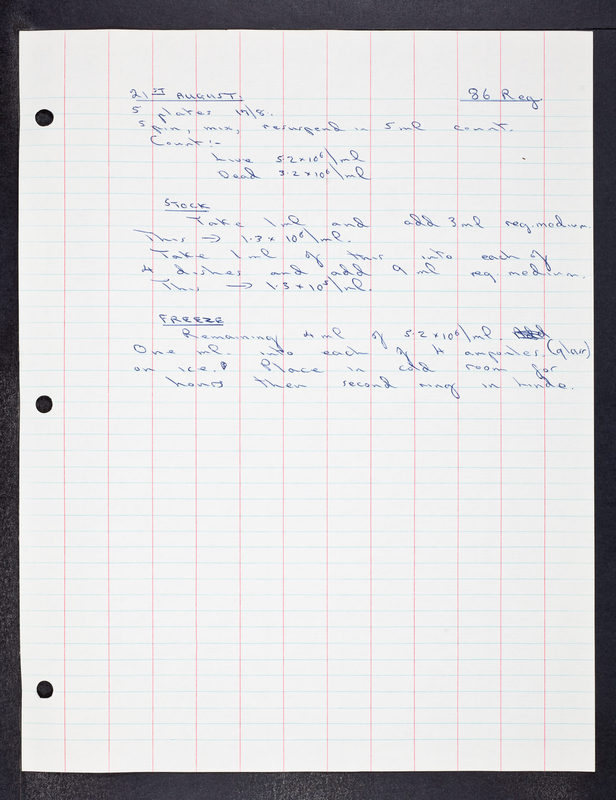 21ST AUGUST: 86 Reg
5 plates 17/8.
Spin, mix, resuspend in 5 ml count.
Count:-
Live 5.2 x 10⁶/ml
Dead 3.2 x 10⁶/ml
STOCK
Take 1 ml and add 3 ml reg. medium.
This → 1.3 x 10⁶/ml.
Take 1 ml of this into each of
4 dishes and add 9 ml reg. medium.
This → 1.3 x 10⁵/ml.
FREEZE
Remaining 4 ml of 5.2 x 10⁶/ml.
One ml. into each of 4 ampoules. (glass)
on ice. Place in cold room for
hours then second ring in linde.